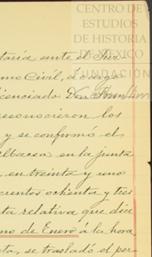 CENTRO DE
ESTUDIOS
DE HISTORIA
DE MÉXICO
FUNDACIÓN
taría ante el
mo Civil, á cargo
licenciado Don
reconocieron los
y se confirmó el
albacea en la junta
en treinta y uno
cientos ochenta y tres
ta relativa que dice
no de Enero á la hora
ta, se trasladó el per-